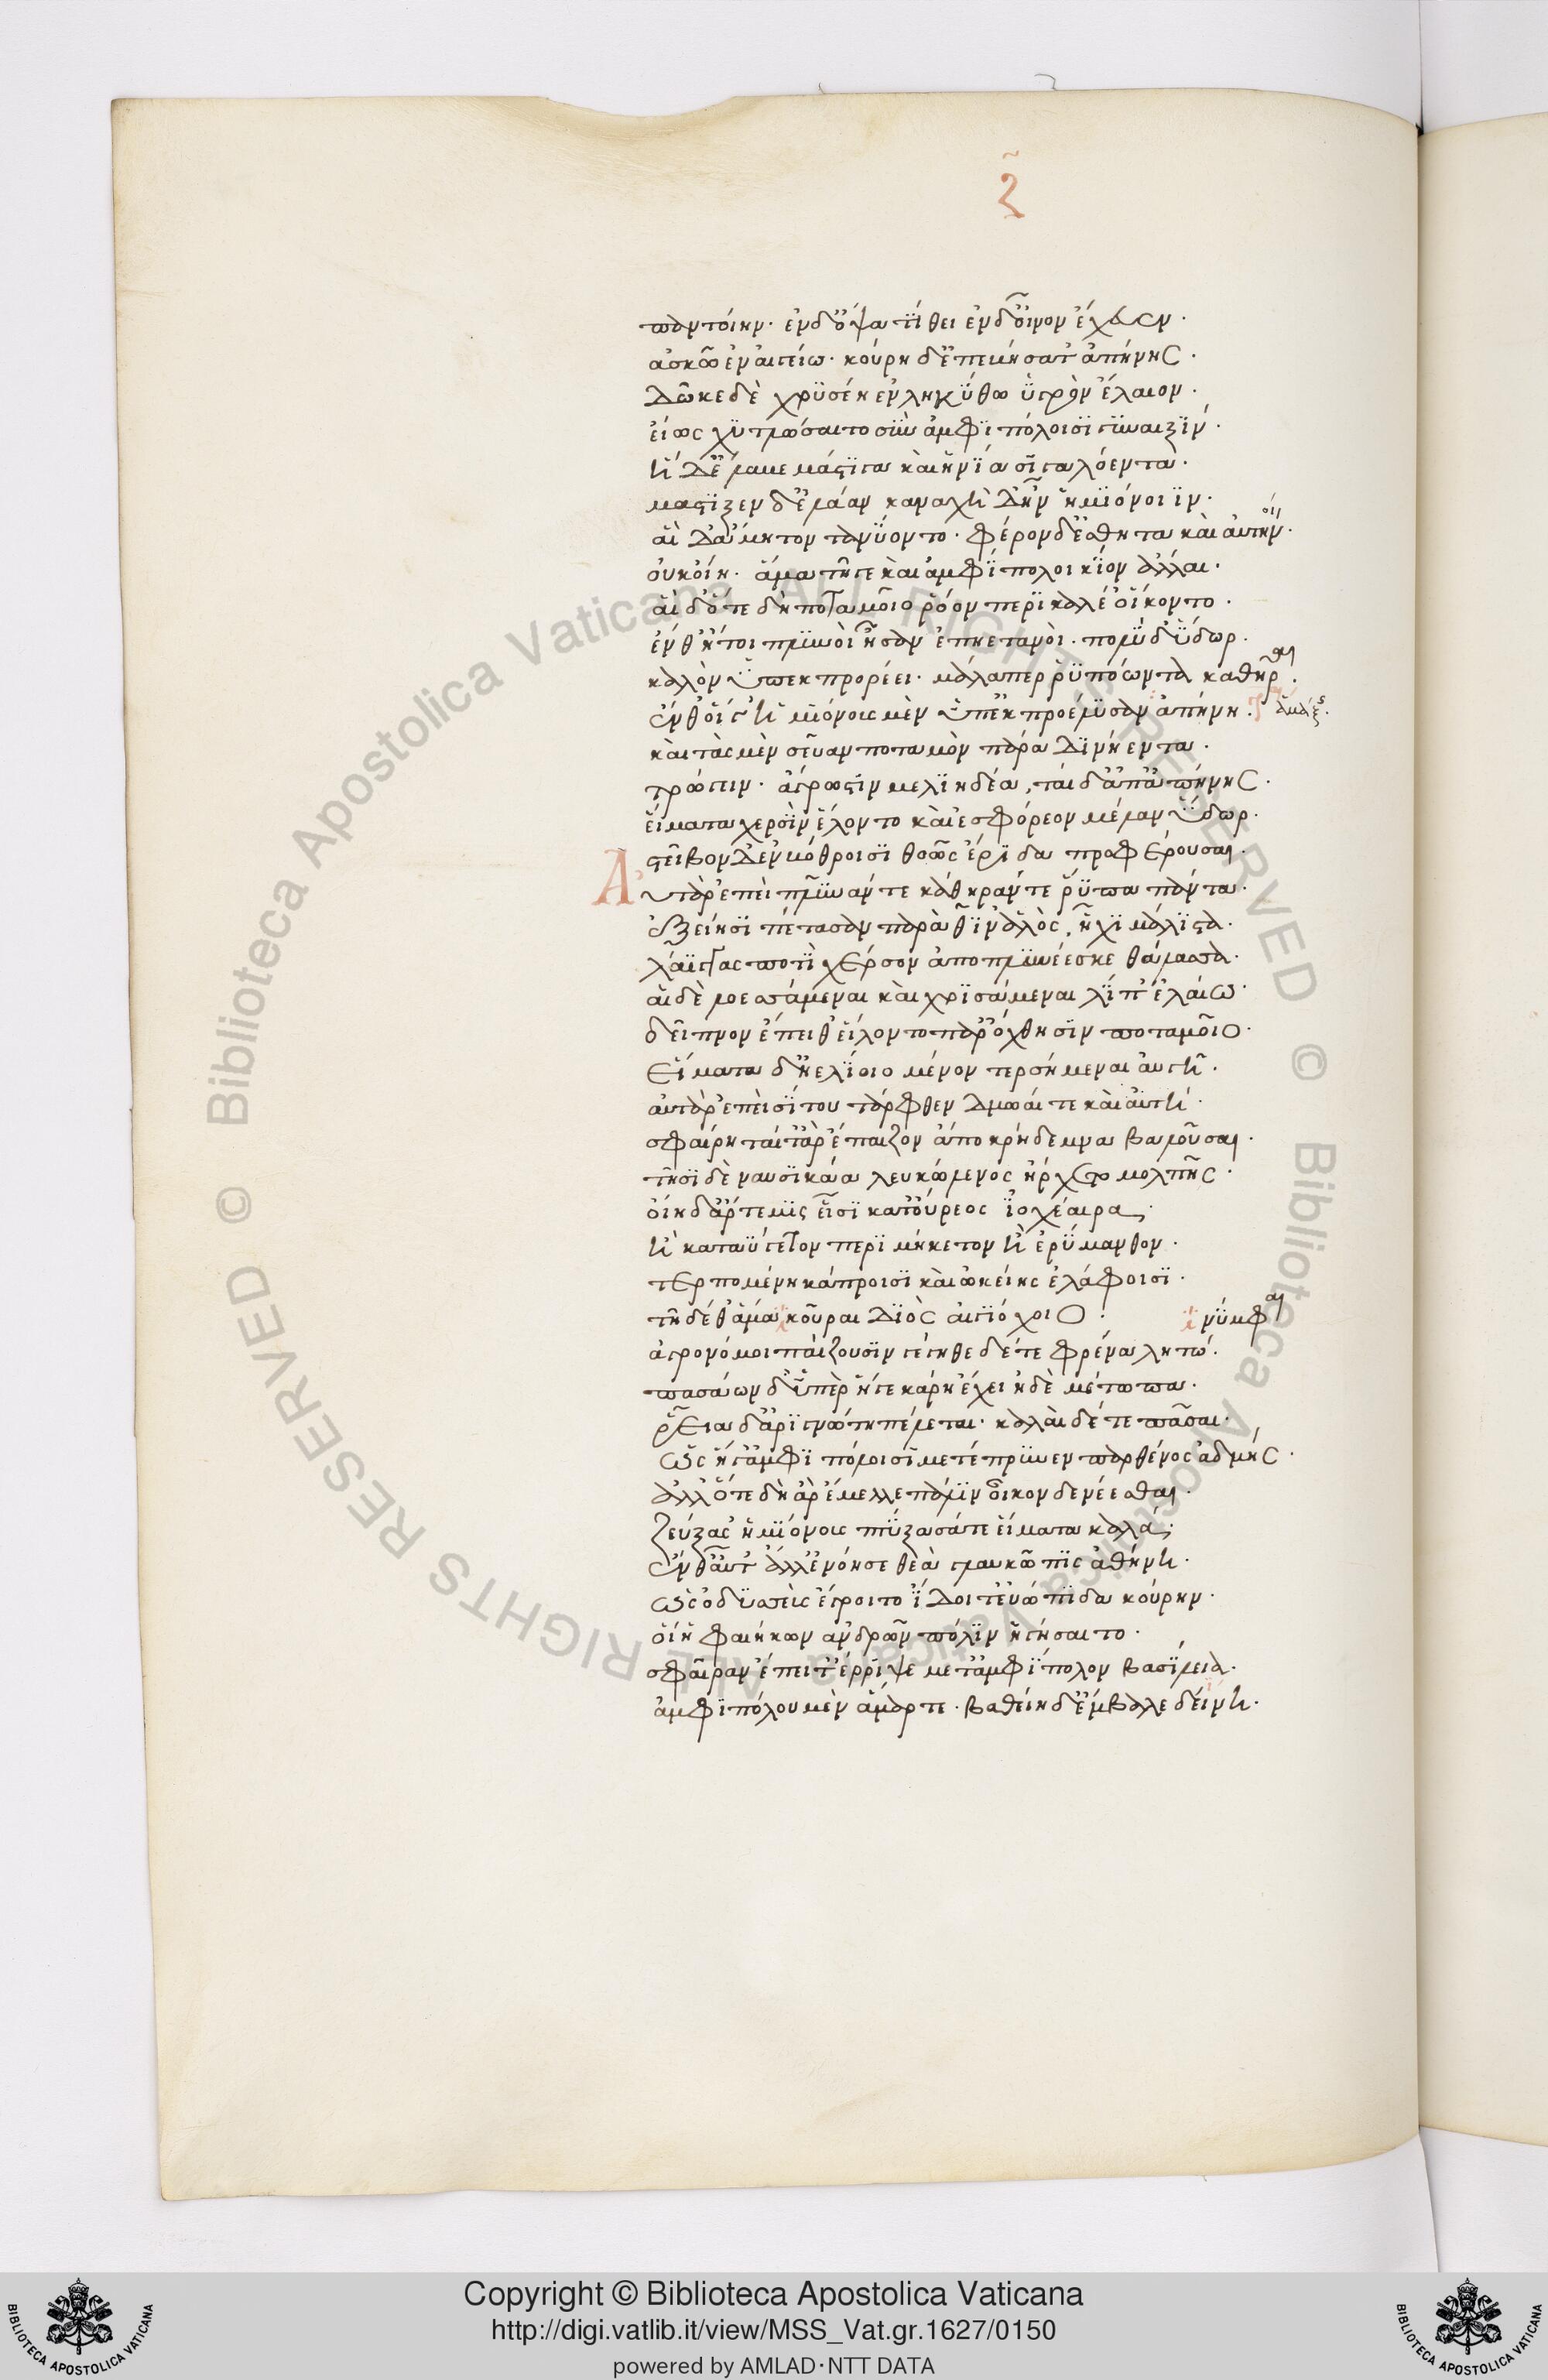 ζ
παντοίην· ἐν δ' ὄψα τίθει ἐν δ' οἶνον ἔχευεν·
ἀσκῶ ἐν αἰγείω· κούρη δ' ἐπεβήσατ' ἀπήνης·
δῶκε δὲ χρυσέη ἐν ληκύθω ὑγρὸν ἔλαιον·
εἵως χυτλώσαιτο σὺν ἀμφιπόλοισι γυναιξίν·
ἡ δ' ἔλαβε μάστιγα καὶ ἡνία σιγαλόεντα·
μάστιξεν δ' ἐλάαν καναχὴ δ' ἦν ἡμιόνοιιν·
αἱ δ' ἄμητον τανύοντο· φέρον δ' ἐσθῆτα καὶ αὐτήν·
οὐκ οἴην· ἅμα τῆγε καὶ ἀμφίπολοι κίον ἄλλαι·
αἱ δ' ὅτε δὴ ποταμοῖο ῥόον περικαλλέ' ἵκοντο·
ἔνθ' ἤτοι πλυνοὶ ἦσαν ἐπηετανοὶ· πολὺ δ' ὕδωρ·
καλὸν ὑπεκπρορέει· μάλα περ ῥυπόωντα καθῆραι·
ἔνθ' αἵγ' ἡμιόνους μὲν ὑπεκπροέλυσαν ἀπήνη· ἁμάξης·
καὶ τὰς μὲν σεῦαν ποταμὸν πάρα δινήεντα·
τρώγειν· ἄγρωστιν μελιηδέα, ταὶ δ' ἀπ' ἀπήνης·
εἵματα χερσὶν ἕλοντο καὶ ἐσφόρεον μέλαν ὕδωρ·
στεῖβον δ' ἐν βόθροισι θοῶς ἔριδα προφέρουσαι·
Αὐτὰρ ἐπεὶ πλῦνάν τε κάθηράν τε ῥύπα πάντα·
ἑξείησι πέτασαν παρὰ θῖν' ἁλὸς, ἧχι μάλιστα·
λάιγγας ποτὶ χέρσον ἀποπλύνεσκε θάλασσα·
αἱ δὲ λοεσσάμεναι καὶ χρισάμεναι λίπ' ἐλαίω·
δεῖπνον ἔπειθ' εἵλοντο παρ' ὄχθησιν ποταμοῖο·
Εἵματα δ' ἠελίοιο μένον τερσήμεναι αὐγῆ·
αὐτὰρ ἐπεὶ σίτου τάρφθεν δμωαί τε καὶ αὐτή·
σφαίρη ταί τ' ἄρ' ἔπαιζον ἀπὸ κρήδεμνα βαλοῦσαι·
τῆσι δὲ ναυσικάα λευκώλενος ἤρχετο μολπῆς·
οἵη δ' ἄρτεμις εἶσι κατ' οὔρεος ἰοχέαιρα·
ἢ κατὰ τηΰγετον περιμήκετον ἢ ἐρύμανθον·
τερπομένη κάπροισι καὶ ὠκείης ἐλάφοισι·
τῆ δέ θ' ἅμα κοῦραι Διὸς αἰγιόχοιο· νύμφαι
ἀγρονόμοι παίζουσιν γέγηθε δέ τε φρένα λητώ·
πασάων δ' ὑπὲρ ἥγε κάρη ἔχει ἠδὲ μέτωπα·
ῥεῖα δ' ἀριγνώτη πέλεται· καλαὶ δέ τε πᾶσαι·
ὣς ἥγ' ἀμφιπόλοισι μετέπρεπεν παρθένος ἀδμής·
ἀλλ' ὅτε δὴ ἄρ' ἔμελλε πάλιν οἶκον δενέεσθαι·
ζεύξασ' ἡμιόνους πτύξασά τε εἵματα καλά·
ἔνθ' αὖτ' ἄλλ' ἐνόησε θεὰ γλαυκῶπις ἀθήνη·
ὡς ὀδυσσεὺς ἔγροιτο ἴδοι τ' εὐώπιδα κούρην·
οἵ ἡ φαιήκων ἀνδρῶν πόλιν ἡγήσαιτο·
σφαῖραν ἔπειτ' ἔρριψε μετ' ἀμφίπολον βασίλεια·
ἀμφιπόλου μὲν ἅμαρτε· βαθείη δ' ἔμβαλε δείνη·
Copyright © Biblioteca Apostolica Vaticana
http://digi.vatlib.it/view/MSS_Vat.gr.1627/0150
powered by AMLAD·NTT DATA